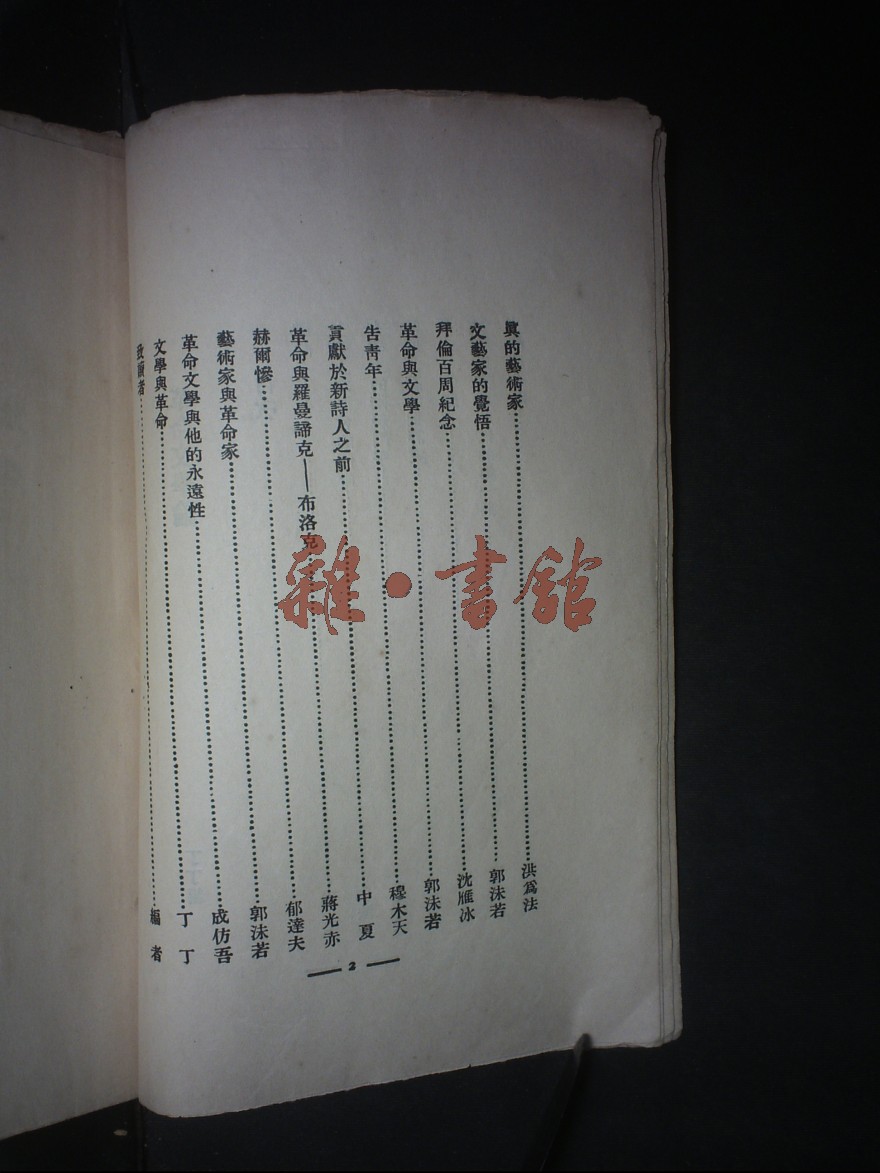 眞的藝術家……洪爲法
文藝家的覺悟……郭沫若
拜倫百周紀念……沈雁冰
革命與文學……郭沫若
告青年……穆木天
貢獻於新詩人之前……中夏
革命與羅曼諦克——布洛克……蔣光赤
赫爾慘……郁達夫
藝術家與革命家……郭沫若
革命文學與他的永遠性……成仿吾
文學與革命……丁丁
致讀者……編者
— 2 —
雜·書館